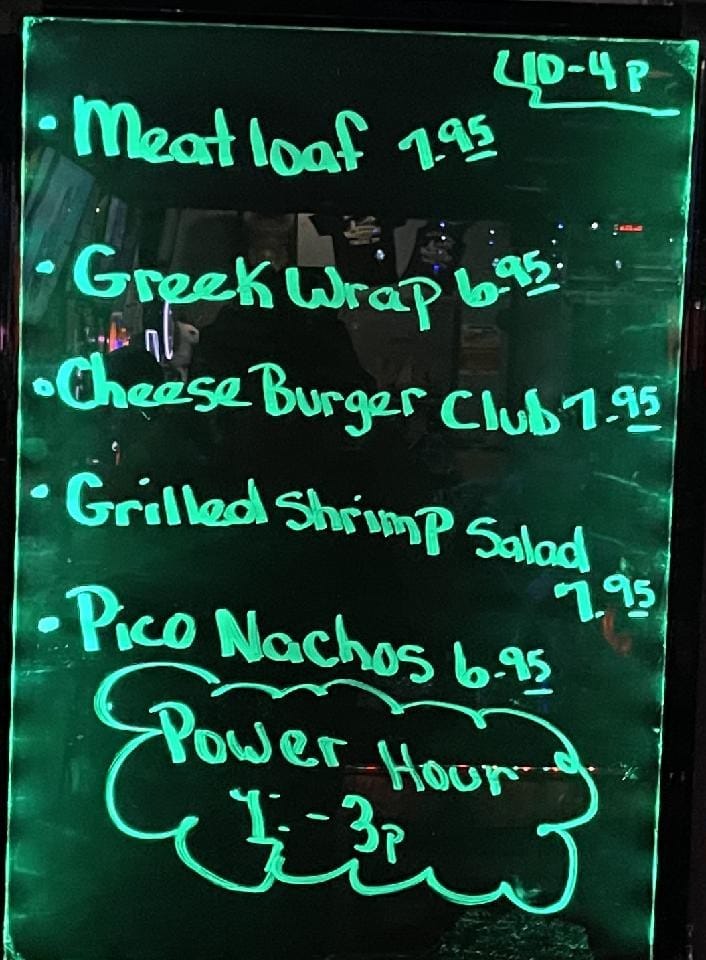 10-4p
• Meatloaf 7.95
• Greek Wrap 6.95
• Cheese Burger Club 7.95
• Grilled Shrimp Salad
7.95
• Pico Nachos 6.95
Power Hour
1 - 3p